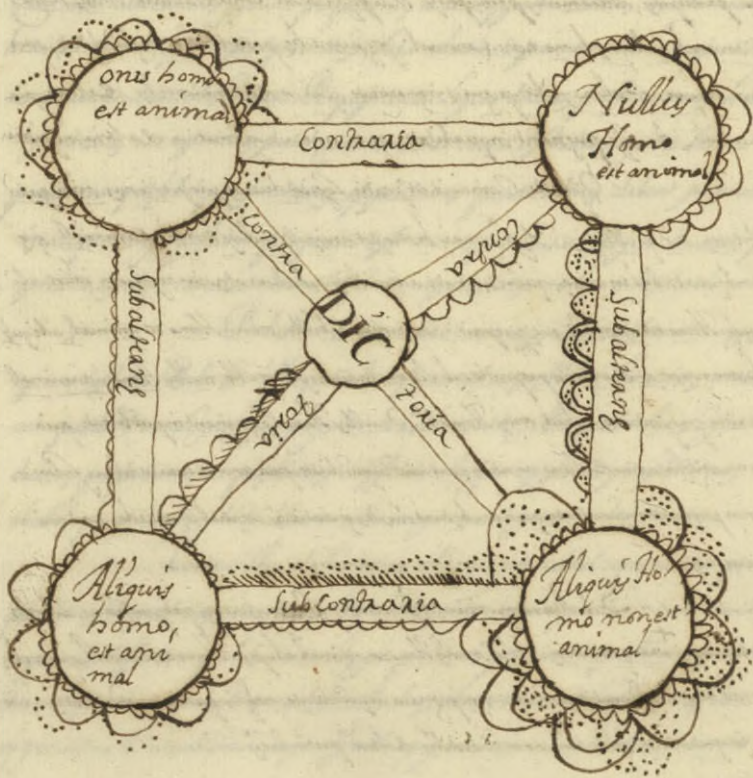 onis homo
est animal
Contraria
Nullus
Homo
est animal
Contra
Contra
DIC
Subalterns
Subalterns
toria
toria
Aliquis
homo,
est ani
mal
SubContraria
Aliquis Ho
mo non est
animal